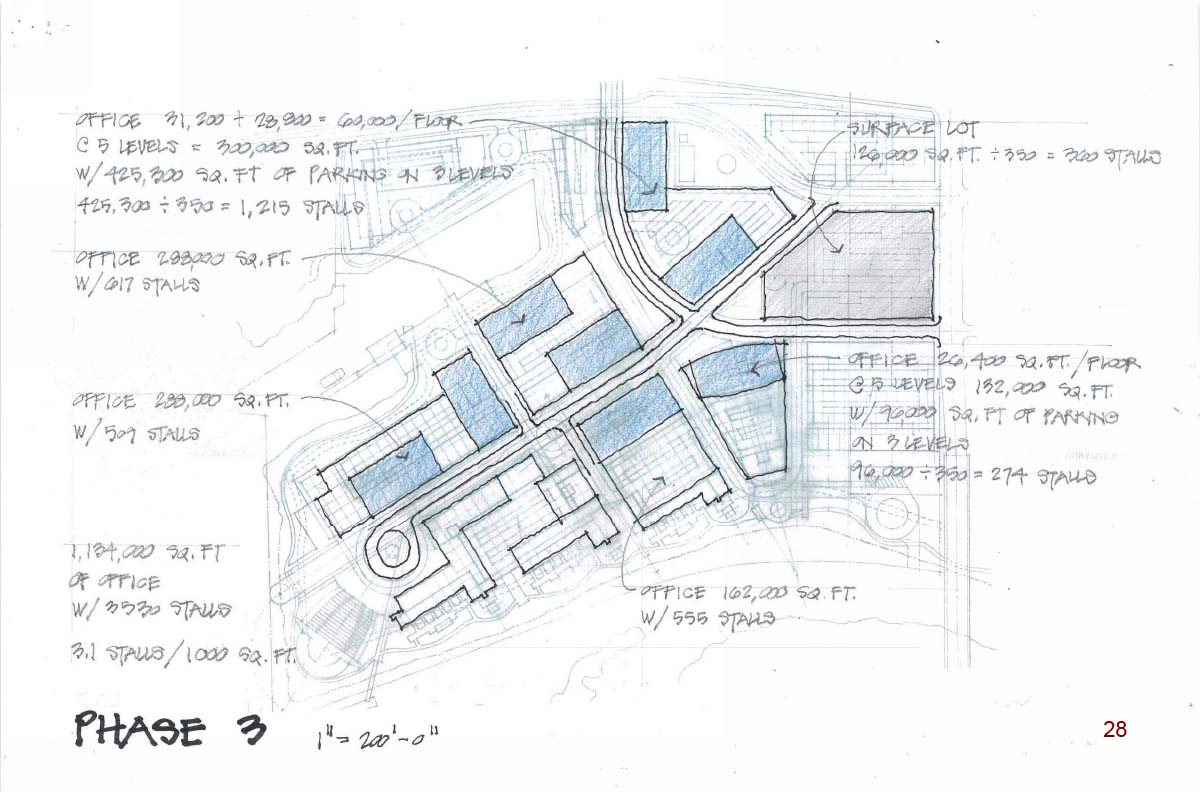 OFFICE 31,200 + 28,800 = 60,000/FLOOR
@ 5 LEVELS = 300,000 SQ.FT.
W/425,300 SQ.FT OF PARKING ON 3 LEVELS
425,300 ÷ 350 = 1,215 STALLS
SURFACE LOT
126,000 SQ.FT. ÷ 350 = 360 STALLS
OFFICE 288,000 SQ.FT.
W/617 STALLS
OFFICE 26,400 SQ.FT./FLOOR
@ 5 LEVELS 132,000 SQ.FT.
W/96,000 SQ.FT OF PARKING
ON 3 LEVELS
96,000 ÷ 350 = 274 STALLS
OFFICE SQ.FT.
W/509 STALLS
1,134,000 SQ.FT
OF OFFICE
W/3530 STALLS
3.1 STALLS/1000 SQ.FT.
OFFICE 162,000 SQ.FT.
W/555 STALLS
PHASE 3 1" = 200'-0"
28